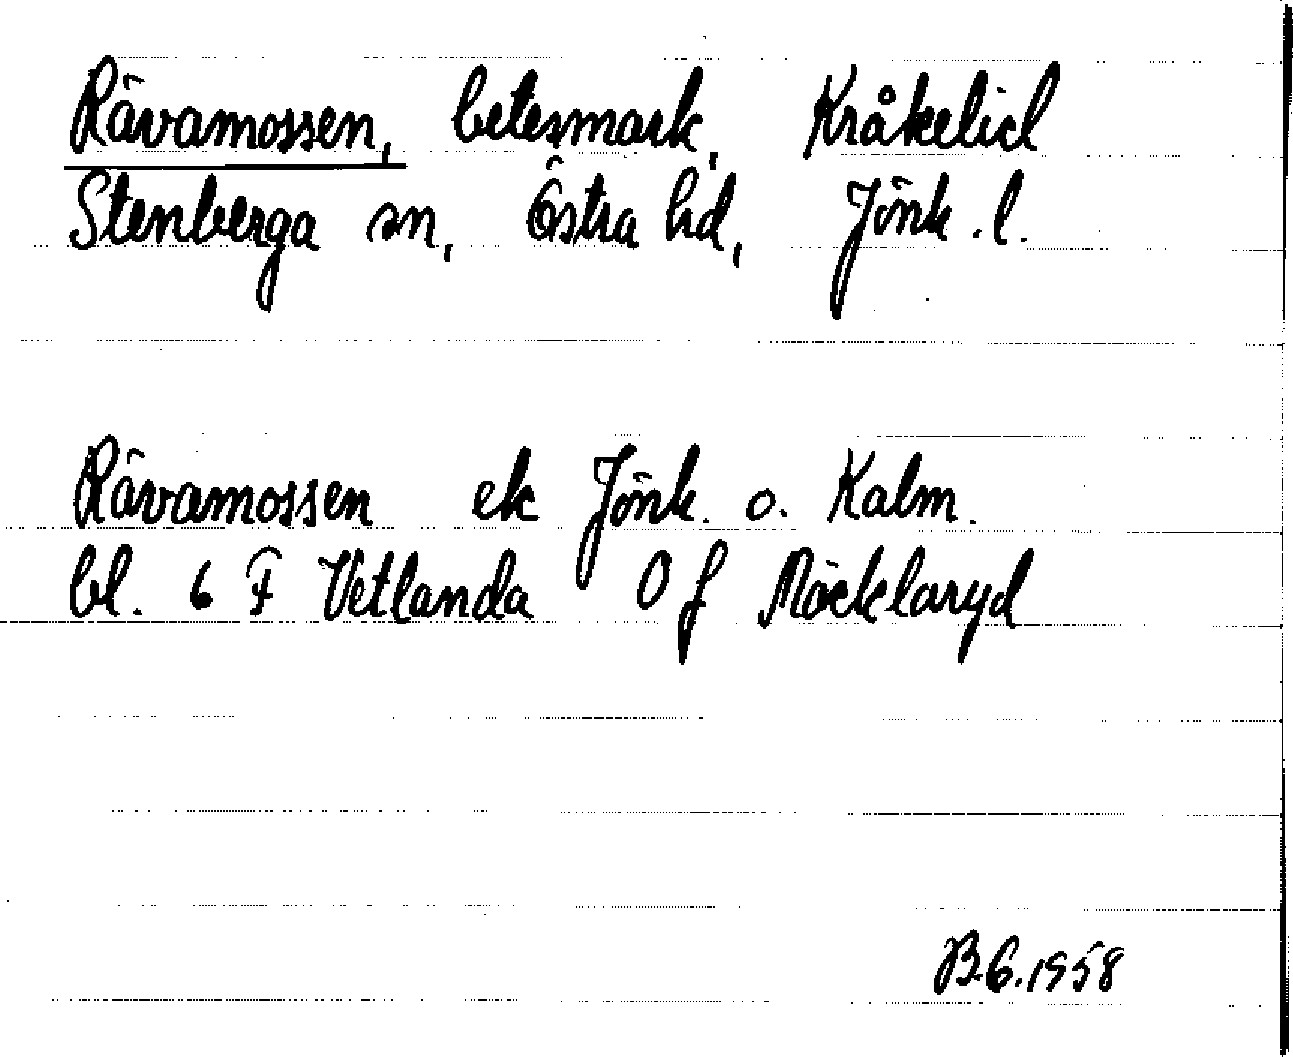 Rävamossen, betesmark, Kråkelid
Stenberga sn, Östra hd, Jönk. l.
Rävamossen ek Jönk. o. Kalm.
bl. 6 F Vetlanda 0 f Möcklaryd
B.G. 1958